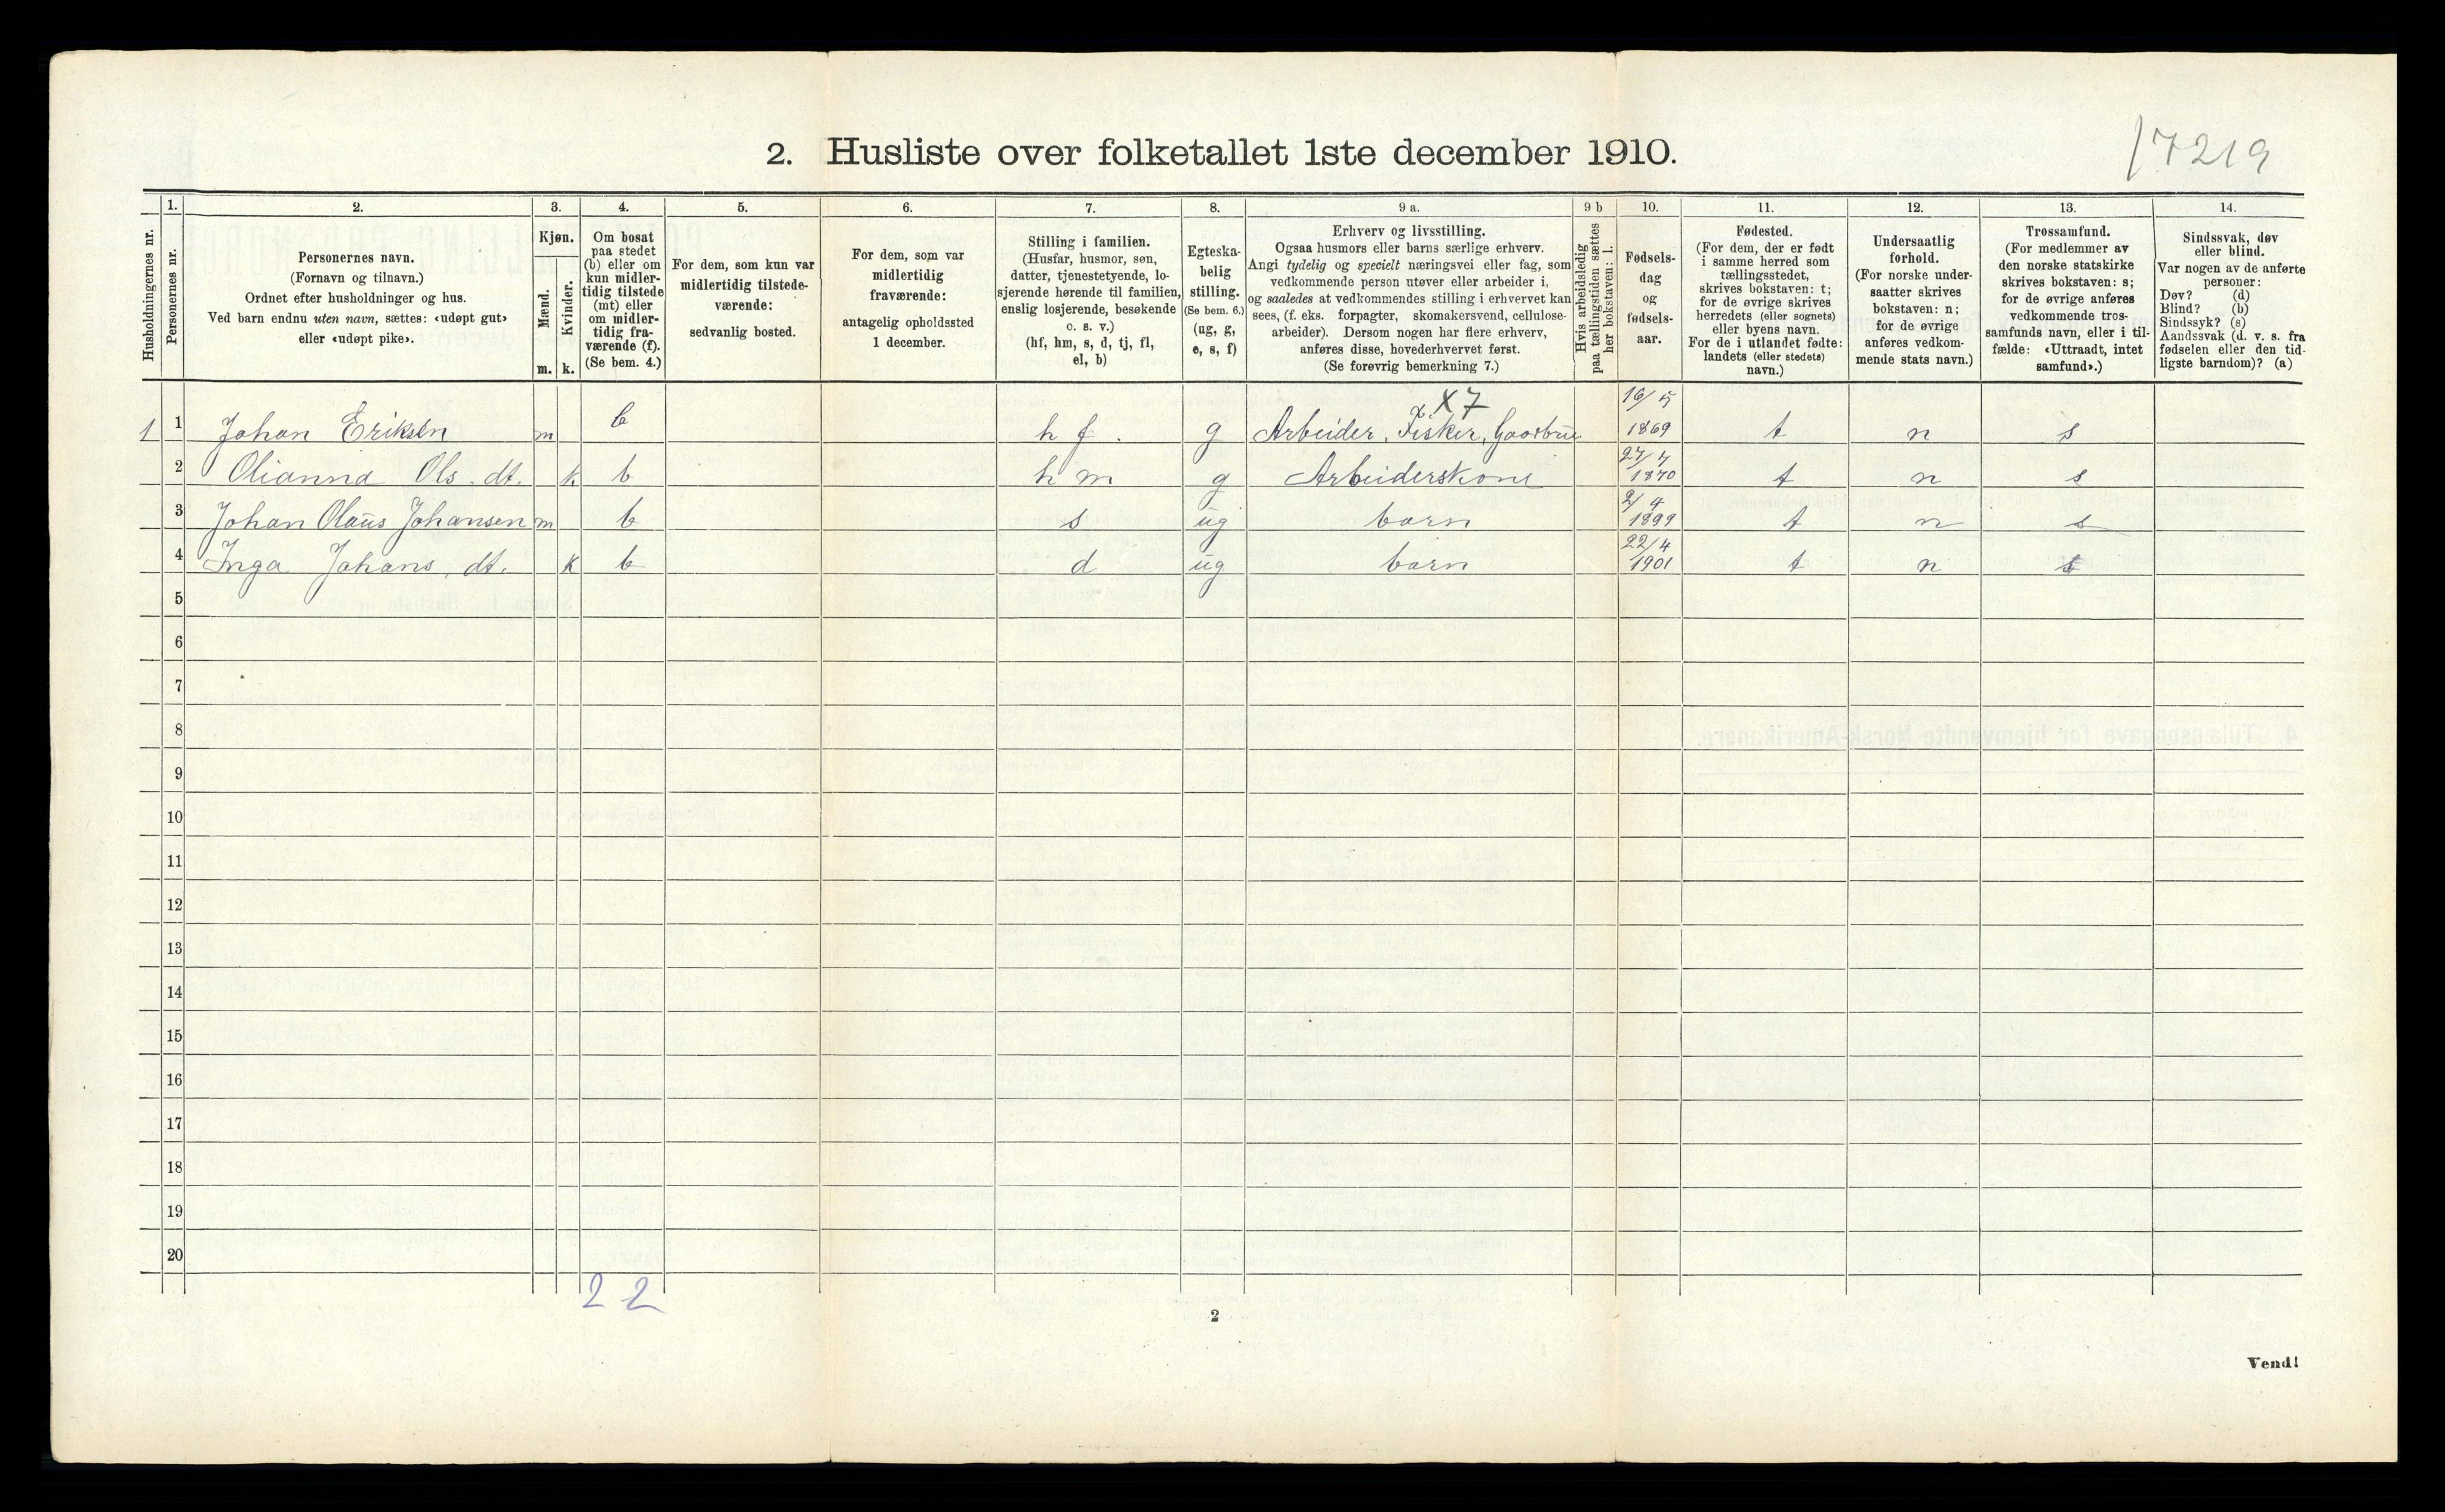 17219
2. Husliste over folketallet 1ste december 1910.
Husholdningernes nr.
1.
Personernes nr.
2.
Personernes navn.
(Fornavn og tilnavn.)
Ordnet efter husholdninger og hus.
Ved barn endnu uten navn, sættes: «udøpt gut»
eller «udøpt pike».
3.
Kjøn.
Mænd.
Kvinder.
m. k.
4.
Om bosat
paa stedet
(b) eller om
kun midler-
tidig tilstede
(mt) eller
om midler-
tidig fra-
værende (f).
(Se bem. 4.)
5.
For dem, som kun var
midlertidig tilstede-
værende:
sedvanlig bosted.
6.
For dem, som var
midlertidig
fraværende:
antagelig opholdssted
1 december.
7.
Stilling i familien.
(Husfar, husmor, søn,
datter, tjenestetyende, lo-
sjerende hørende til familien,
enslig losjerende, besøkende
o. s. v.)
(hf, hm, s, d, tj, fl,
el, b)
8.
Egteska-
belig
stilling.
(Se bem. 6.)
(ug, g,
e, s, f)
9 a.
Erhverv og livsstilling.
Ogsaa husmors eller barns særlige erhverv.
Angi tydelig og specielt næringsvei eller fag, som
vedkommende person utøver eller arbeider i,
og saaledes at vedkommendes stilling i erhvervet kan
sees, (f. eks. forpagter, skomakersvend, cellulose-
arbeider). Dersom nogen har flere erhverv,
anføres disse, hovederhvervet først.
(Se forøvrig bemerkning 7.)
9 b
Hvis arbeidsledig
paa tællingstiden sættes
her bokstaven: l.
10.
Fødsels-
dag
og
fødsels-
aar.
11.
Fødested.
(For dem, der er født
i samme herred som
tællingsstedet,
skrives bokstaven: t;
for de øvrige skrives
herredets (eller sognets)
eller byens navn.
For de i utlandet fødte:
landets (eller stedets)
navn.)
12.
Undersaatlig
forhold.
(For norske under-
saatter skrives
bokstaven: n;
for de øvrige
anføres vedkom-
mende stats navn.)
13.
Trossamfund.
(For medlemmer av
den norske statskirke
skrives bokstaven: s;
for de øvrige anføres
vedkommende tros-
samfunds navn, eller i til-
fælde: «Uttraadt, intet
samfund».)
14.
Sindssvak, døv
eller blind.
Var nogen av de anførte
personer:
Døv? (d)
Blind? (b)
Sindssyk? (s)
Aandssvak (d. v. s. fra
fødselen eller den tid-
ligste barndom)? (a)
X7
1 1 Johan Eriksen m b h f. g Arbeider, Fisker, 1869 t n s
2 Olianna Ols. dt. k b h m g Arbeiderskone 1870 t n s
3 Johan Olaus Johansen m b s ug barn 2/4 1899 t n s
4 Inga Johans. dt. k b d ug barn 22/4 1901 t n s
5
6
7
8
9
10
11
12
13
14
15
16
17
18
19
20
2 2
2
Vend!